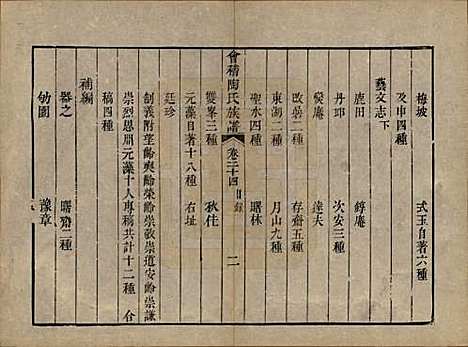 梅坡
式玉自著六種
及申四種
藝文志下
鹿田
錞菴
丹邱
次安三種
燮菴
達夫
改菴二種
存齋五種
東湖二種
月山九種
聖水四種
曙林
會稽陶氏族譜 卷二十四 目錄 二
雙峯三種
秋佳
元藻自著十八種
右址
廷珍
制義附望齡奭齡榮齡崇敬崇道安齡崇謙
崇烈恩期元藻十人專稿共計十二種
合
稿四種
補編
器之
曙齋二種
劬園
豫章